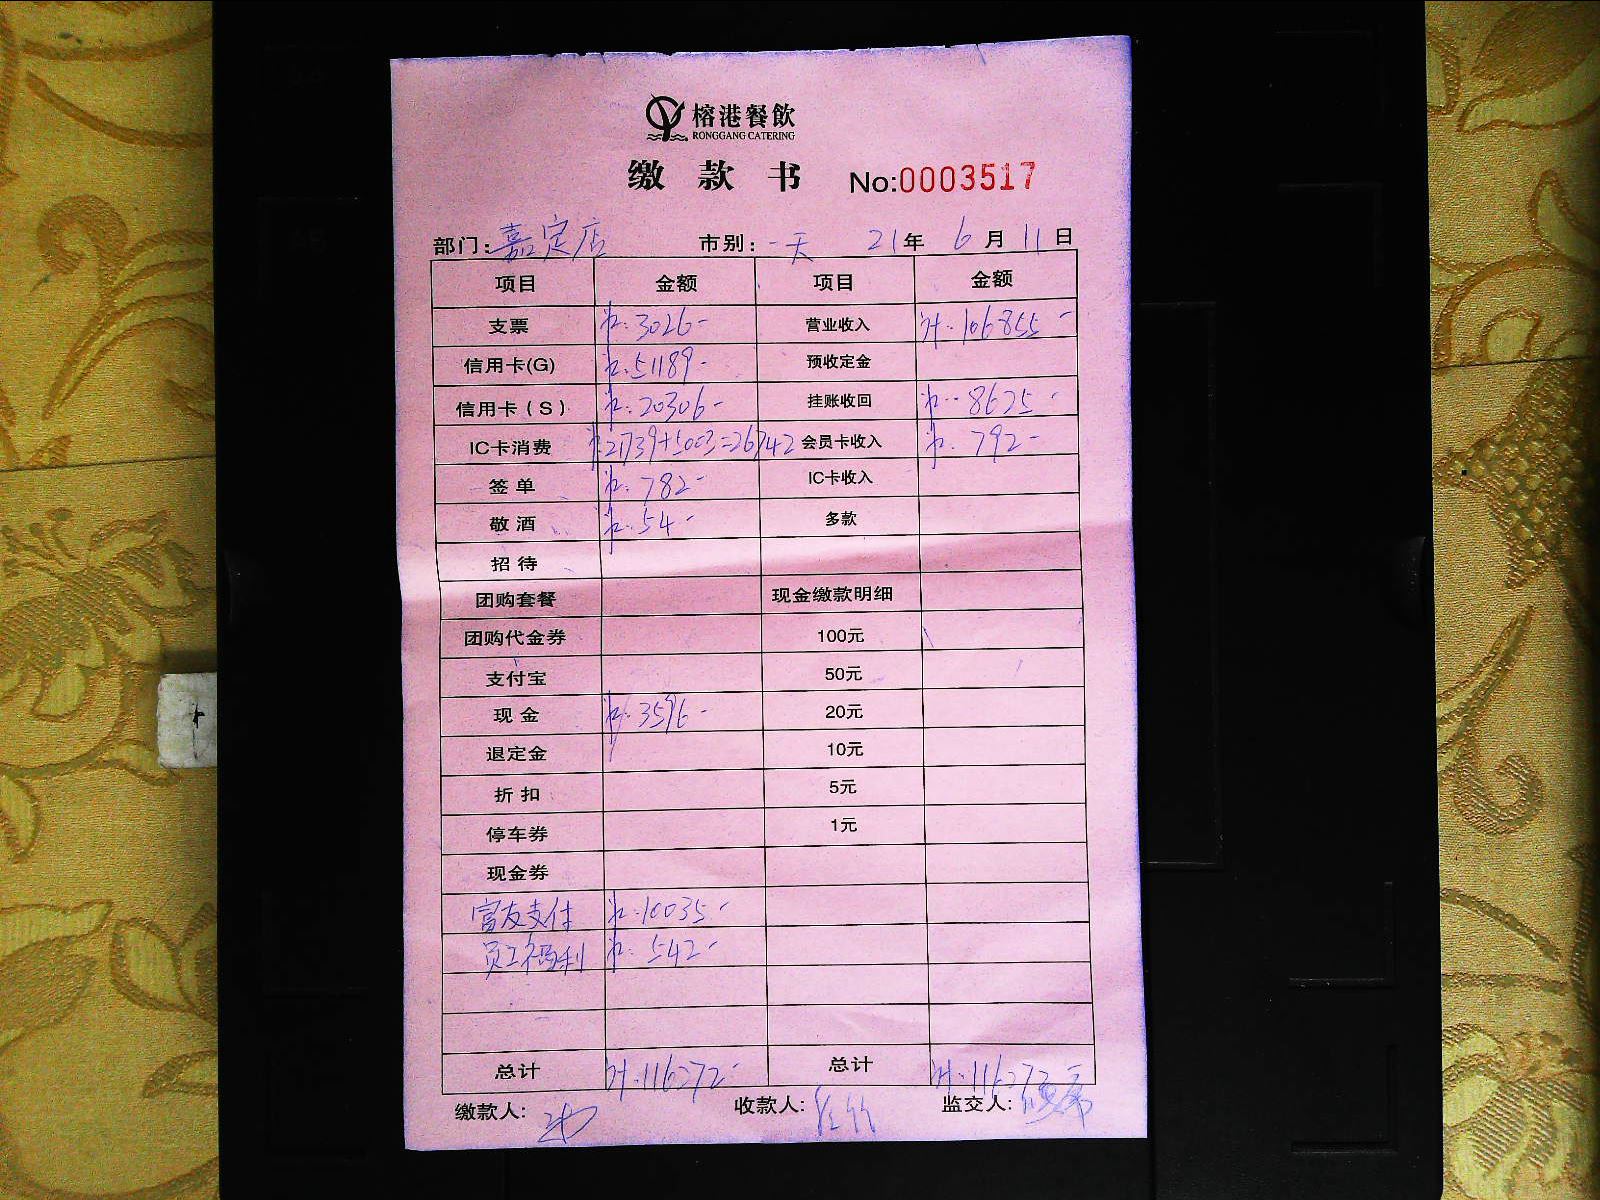 榕港餐飲
RONGGANG CATERING
缴款书 No:0003517
部门: 嘉定店 市别: 一天 21年 6月 11日
项目 金额 项目 金额
支票 3026- 营业收入 106855-
信用卡(G) 51189- 预收定金
信用卡(S) 20306- 挂账收回 8625-
IC卡消费 21739+5003=26742 会员卡收入 792-
签单 782- IC卡收入
敬酒 54- 多款
招待
团购套餐 现金缴款明细
团购代金券 100元
支付宝 50元
现金 3596- 20元
退定金 10元
折扣 5元
停车券 1元
现金券
富友支付 10035-
员工福利 542-
总计 116272- 总计 116272-
缴款人: 收款人: 监交人: